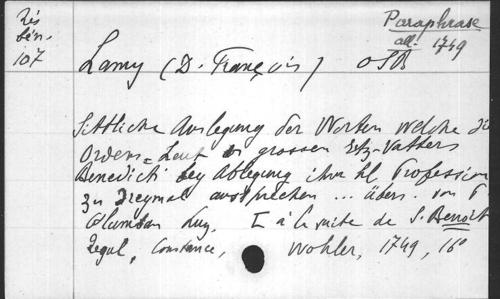 Rés
bén.
107
Paraphrase
all. 1749
Lamy (D. François) OSB
Sittliche Auslegung der Worten welche die
Ordens=Leut des grossen Ertz-Vatters
Benedicti bey Ablegung ihrer hl. Profession
zu dreymal aussprechen ... übers. von P
Columban Luz. [ à la suite de S. Benoît
Regul, Constance, Wohler, 1749, 16°